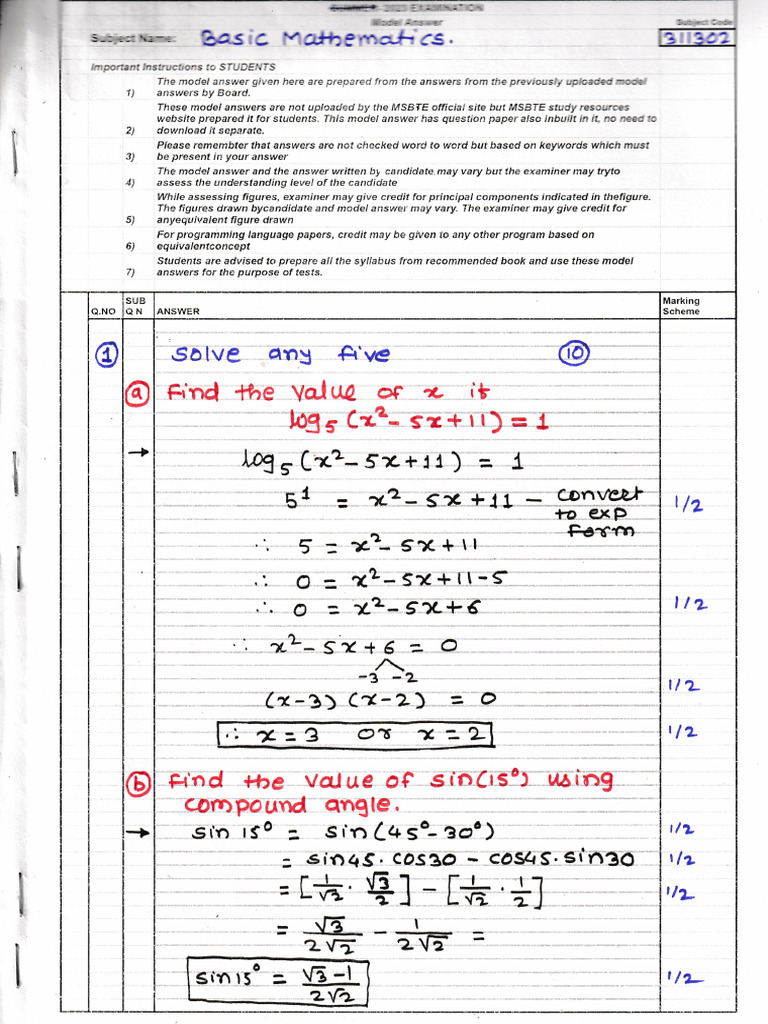 SUMMER - 2023 EXAMINATION
Model Answer
Subject Code
Subject Name: Basic Mathematics. 311302
Important Instructions to STUDENTS
1) The model answer given here are prepared from the answers from the previously uploaded model
answers by Board.
2) These model answers are not uploaded by the MSBTE official site but MSBTE study resources
website prepared it for students. This model answer has question paper also inbuilt in it, no need to
download it separate.
3) Please remembter that answers are not checked word to word but based on keywords which must
be present in your answer
4) The model answer and the answer written by candidate may vary but the examiner may tryto
assess the understanding level of the candidate
5) While assessing figures, examiner may give credit for principal components indicated in thefigure.
The figures drawn bycandidate and model answer may vary. The examiner may give credit for
anyequivalent figure drawn
6) For programming language papers, credit may be given to any other program based on
equivalentconcept
7) Students are advised to prepare all the syllabus from recommended book and use these model
answers for the purpose of tests.
Q.NO SUB Q N ANSWER Marking Scheme
① Solve any five ⑩
ⓐ Find the value of x if
log₅ (x² - 5x + 11) = 1
→ log₅ (x² - 5x + 11) = 1
5¹ = x² - 5x + 11 - convert to exp form 1/2
∴ 5 = x² - 5x + 11
∴ 0 = x² - 5x + 11 - 5
∴ 0 = x² - 5x + 6 1/2
∴ x² - 5x + 6 = 0
-3 -2
(x-3) (x-2) = 0 1/2
∴ x = 3 or x = 2 1/2
ⓑ Find the value of sin(15°) using
compound angle.
→ sin 15° = sin(45° - 30°) 1/2
= sin45 · cos30 - cos45 · sin30 1/2
= [1/√2 · √3/2] - [1/√2 · 1/2] 1/2
= √3/2√2 - 1/2√2 =
sin15° = √3-1/2√2 1/2